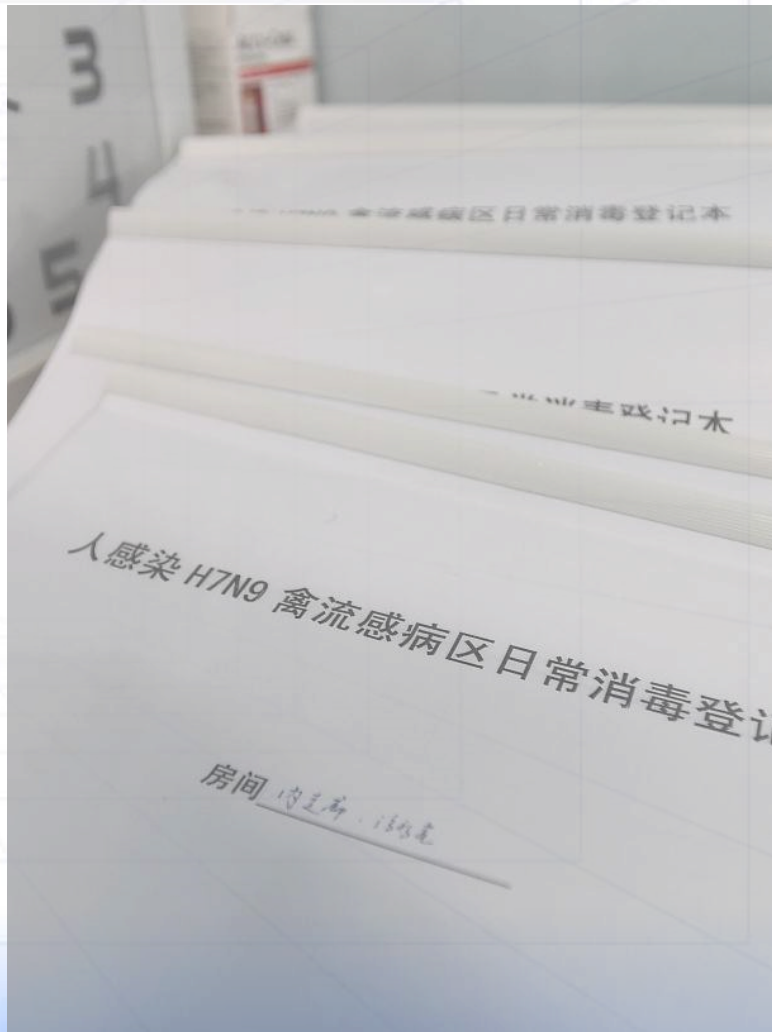 3
4
5
禽流感病区日常消毒登记本
消毒登记本
人感染 H7N9 禽流感病区日常消毒登记
房间 内走廊、治疗室